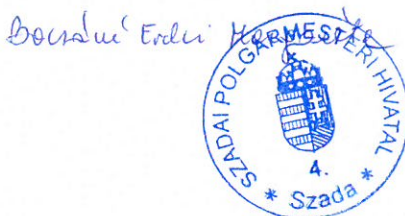 Bocsáné Erdei
SZADAI POLGÁRMESTERI HIVATAL
4.
* Szada *